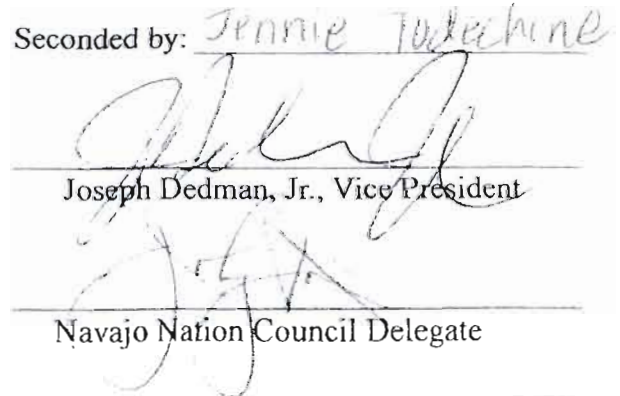 Seconded by: Jennie Todechine
Joseph Dedman, Jr., Vice President
Navajo Nation Council Delegate